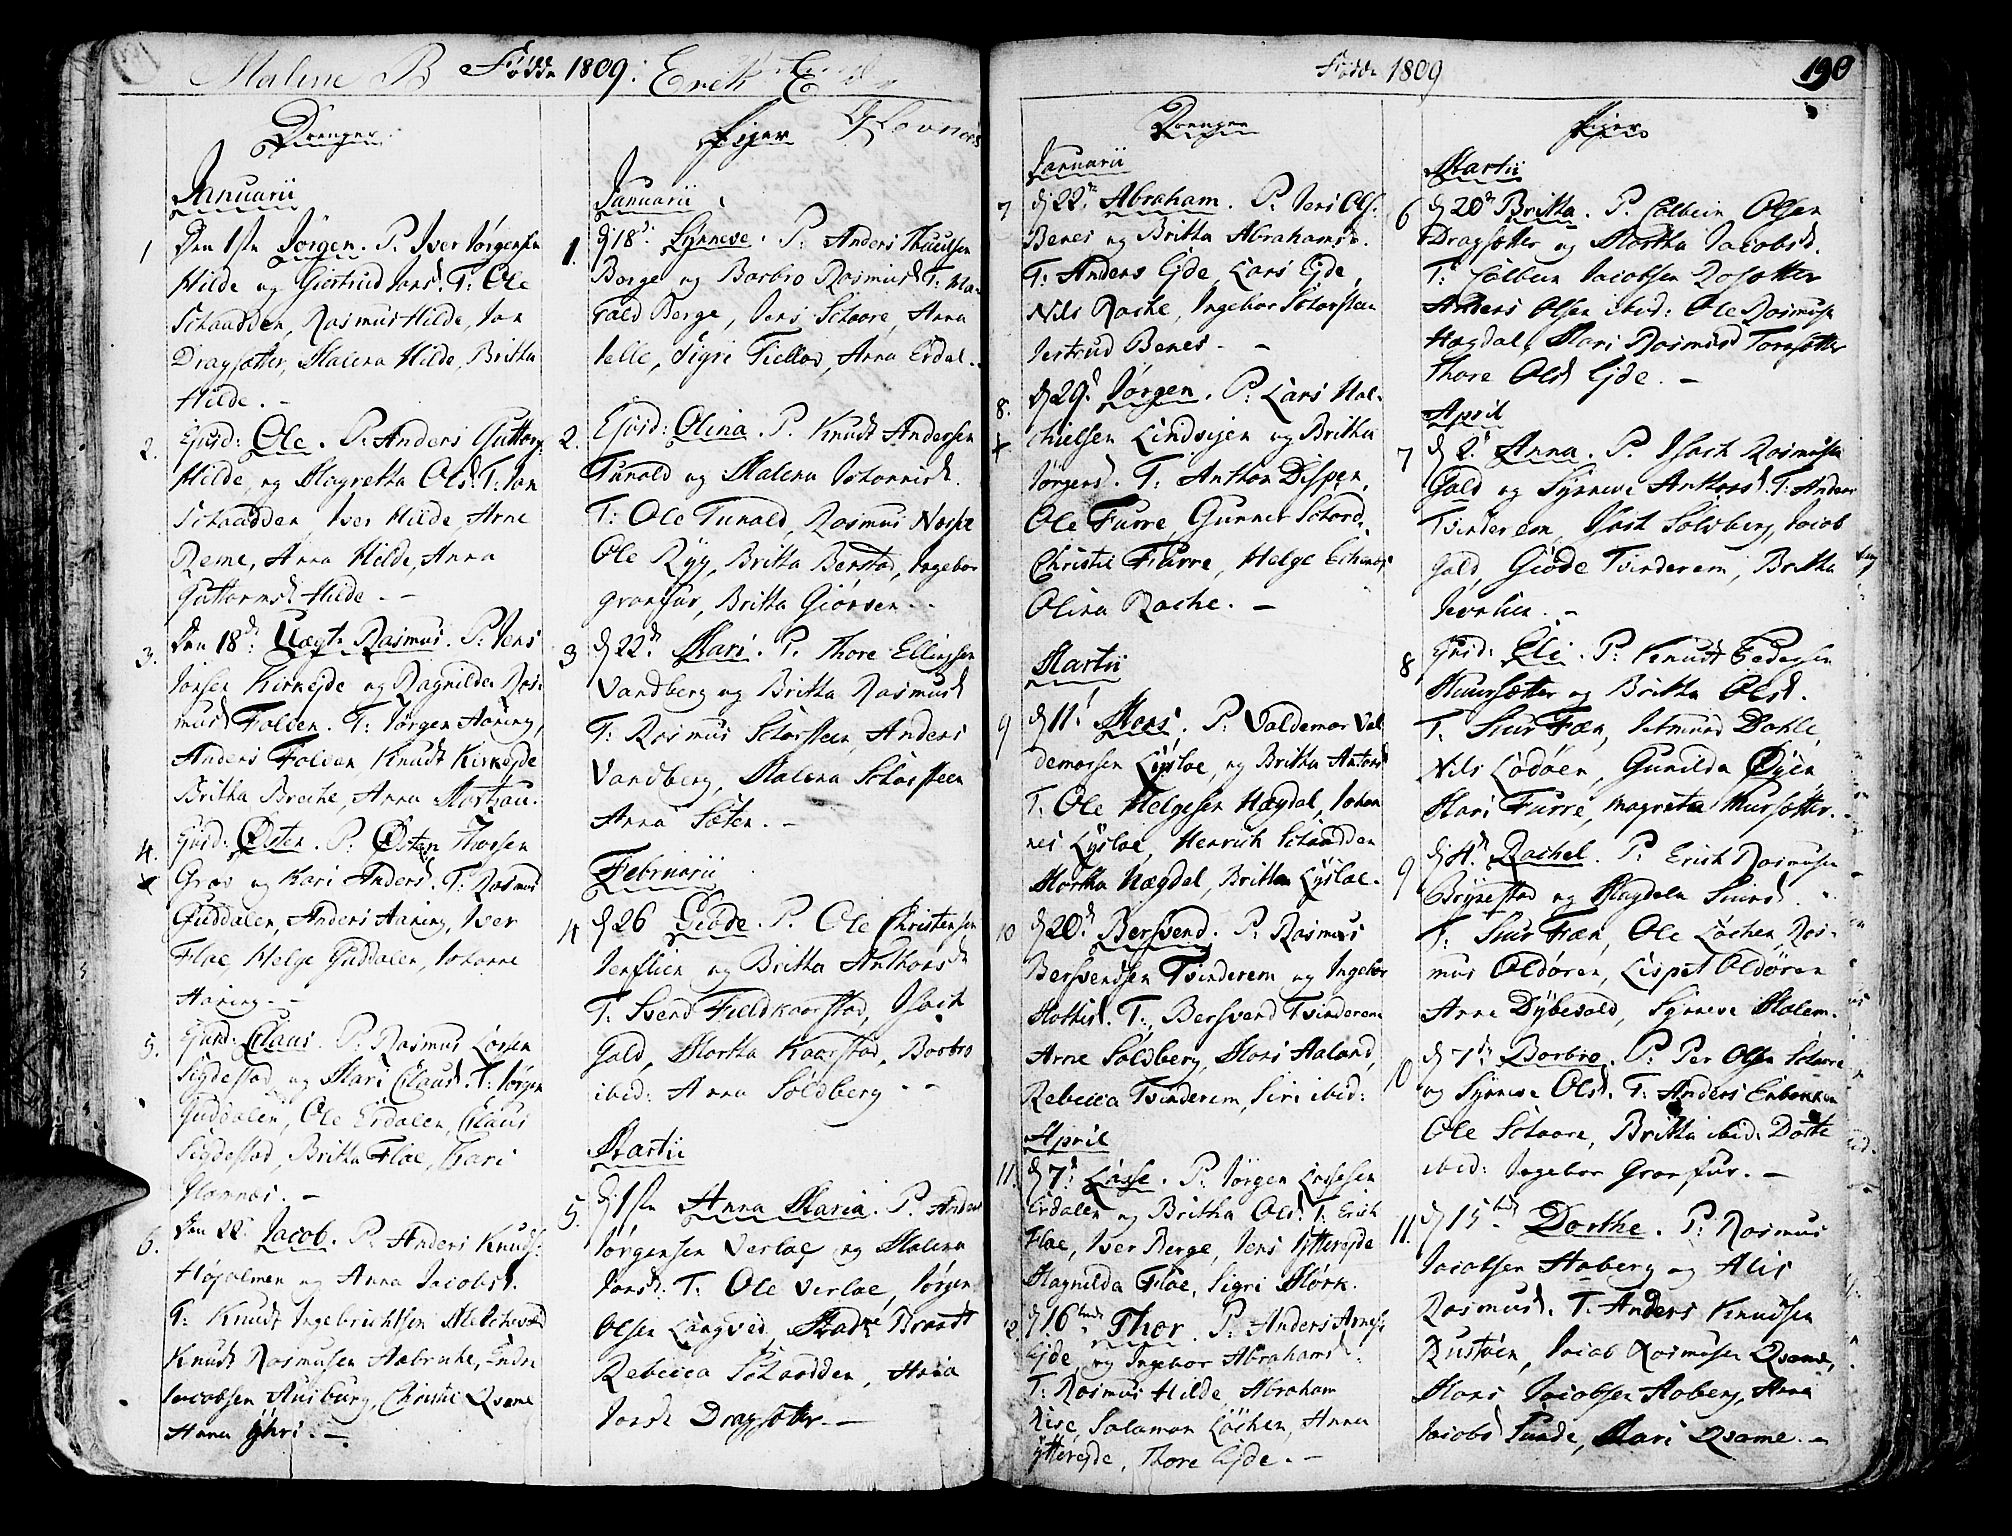 Malene B Fødde 1809: Erik E
Drenger
Januarii
1 Den 1ste Jørgen. P. Iver Jørgensen
Hilde og Giertrud Jons. T: Ole
Schaadden, Rasmus Hilde, Jon
Dragsætter, Malena Hilde, Britha
Hilde. -
2. Ejusd: Ole. P. Anders Guttorms:
Hilde, og Magretha Olsd. T: Jon
Schaadden Iver Hilde, Arne
Reme, Anna Hilde, Anna
Guttormsd Hilde. -
3. Den 18de Uægte Rasmus. P: Jens
Jonsen Kirkejde og Ragnilda Ras-
musd Folven. T: Jørgen Aaning,
Anders Folven Knudt Kirkejde
Britha Breche, Anna
4. Ejusd: Østen. P: Østen Thorsen
x Grav og Kari Andersd. T: Rasmus
Guddalen, Anders Aaning, Iver
Flae, Helge Guddalen, Johanne
Aaning. -
5. Ejusd: Claus. P: Rasmus Larsen
Sigdestad og Mari Clausd. T: Jørgen
Guddalen, Ole Erdalen, Claus
Sigdestad, Britha Flae, Kari
Glomnes. -
6. Den 22 Jacob. P. Anders Knuds:
Højolmen og Anna Jacobsd.
T: Knudt Ingebrichtsen
Knudt Rasmusen Aabreche, Endre
Jacobsen Auiburg, Christi Qvame
Anna Ythri. -
Piger
Januarii
1. d 18d: Synneve. P: Anders Paulsen
Berge og Barbro Rasmusd T: Ha-
rald Berge, Jens Schaare, Anna
Telle, Sigri Tiellad, Anna Erdal.
2. Ejusd: Olina. P. Knudt Andersen
Tunold og Malena Johannisd.
T: Ole Tunold, Rasmus Nosse
Ole Ryg, Britha Berstad, Ingebor
Granfur, Britha Giørven. -
3 d 22de Mari. P. Thore Ellingsen
Vandberg og Britha Rasmusd
T: Rasmus Schorsteen, Anders
Vandberg, Malena Schorsteen
Anna Sæten. -
Februarii
4 d 26 Giøde. P. Ole Christensen
Jenslien og Britha Anthonsd
T. Svend Fieldkaarstad, Isach
Gald, Martha Kaarstad, Barbro
ibid: Anna Soldberg -
Martii
5. d 1ste Anna Maria. P. Anders
Jørgensen Verlae og Malena
Jonsd. T: Ole Verlae, Jørgen
Olsen Langved, Madme Brandt
Rebecca Schaadden, Anna
Jonsd Dragsætter. -
Fødde 1809
190
Drenger
Januarii
7 d 22de Abraham. P. Jens Ols:
Benes og Britha Abrahamsd.
T: Anders Ejde, Lars Ejde,
Nils Rache, Ingebor Schorsteen
Jertrud Benes. -
8. d 29d Jørgen. P. Lars Mal-
x chielsen Lindvigen og Britha
Jørgensd. T: Anthon Dispen,
Ole Furre, Gunner Schard,
Christie Furre, Helge
Olina Rache. -
Martii
9 d 11d Mons. P. Valdemor Val-
demorsen Lyslae, og Britha Antonsd
T. Ole Helgesen Hægdal, Johan
nes Lyslae, Henrich Schaadden
Martha Hægdal, Britha Lyslae.
10 d 20de Bersvend. P: Rasmus
Bersvendsen Tvinderem og Ingebor
Mathisd. T: Bersvend Tvinderem
Arne Soldberg, Mons Aaland,
Rebecca Tvinderem, Siri ibid:
April
11. d 7de Lasse. P. Jørgen Lassesen
Erdalen og Britha Olsd. T. Erich
Flae, Iver Berge, Jens Ytterejde
Magnilda Flae, Sigri Mørk.
12. d 16tende Thor P. Anders Arnes.
Ejde og Ingebor Abrahamsd.
T: Rasmus Hilde Abraham
Rise, Salamon Løchen, Anna
Ytterejde, Thore Ejde. -
Piger
Martii
6 d 20de Britha. P. Colbein Olsen
Dragsætter og Martha Jacobsd.
T: Colbein Jacobsen Rosætter
Anders Olsen ibid: Ole Rasmusen
Hægdal, Mari Rasmusd Torsætter
Thore Olsd Ejde. -
April
7 d 2d Anna. P. Isach Rasmusen
Gald og Synneve Anthonsd. T. Anders
Tvinderem, Isach Soldberg, Jacob
Gald, Giøde Tvinderem, Britha
Jenslien. -
8 Ejusd: Eli. P: Knudt Pedersen
Muursætter og Britha Olsd.
T: Siur Fæn, Jetmund Dahle,
Nils Lødøen, Gunilda Øyen
Mari Furre, Magreta Mursætter. -
9 d 4d Rachel. P: Erich Rasmusen
Brynestad og Magdela Siursd.
T: Siur Fæn, Ole Løchen, Ras-
mus Oldøren, Lispet Oldøren
Arne Dybevold, Synneve Malem.
10 d 7de Barbro. P: Per Olsen Schaare
og Synneve Olsd. T. Anders Erbachen
Ole Schaare, Britha ibid: Dorte
ibid: Ingebor Granfur. -
11. d 15tende Dorthe. P: Rasmus
Jacobsen Aaberg og Alis
Rasmusd. T: Anders Knudsen
Rustøen, Jacob Rasmusen Qvame,
Mons Jacobsen Aaberg, Anna
Jacobsd Tunde, Mari Qvame. -